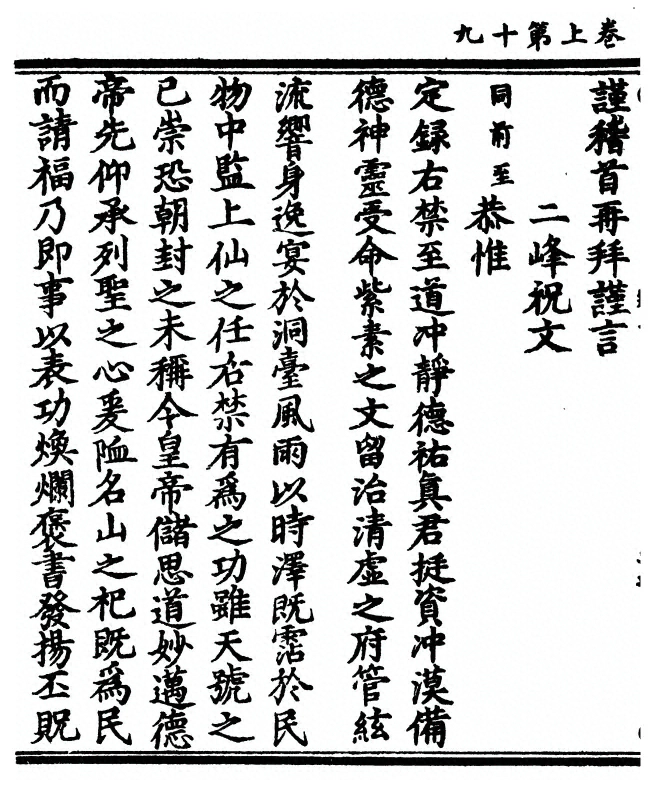 卷上第十九
謹稽首再拜謹言
二峰祝文
同前至 恭惟
定録右禁至道冲靜德祐眞君挺資冲漠備
德神靈受命紫素之文留治清虛之府管絃
流響身逸宴於洞臺風雨以時澤既霑於民
物中監上仙之任右禁有爲之功雖天號之
已崇恐朝封之未稱今皇帝儲思道妙邁德
帝先仰承列聖之心爰陟名山之祀既爲民
而請福乃即事以表功煥爛褒書發揚丕貺